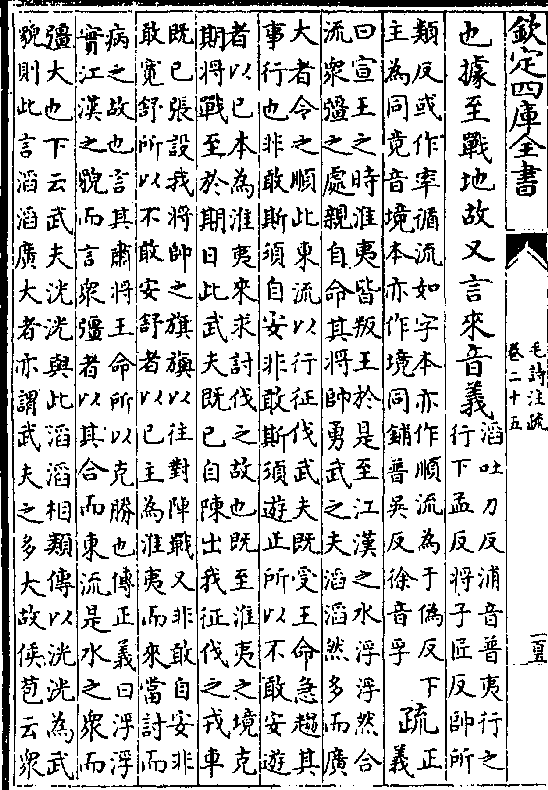 欽定四庫全書
毛詩注疏
卷二十五
也據至戰地故又言來音義
滔吐刀反浦音普夷行之
行下孟反將子匠反帥所
類反或作率循流如字本亦作順流為于偽反下
主為同竟音境本亦作境同鋪普吳反徐音孚
疏
正
義
曰宣王之時淮夷皆叛王於是至江漢之水浮浮然合
流衆彊之處親自命其將帥勇武之夫滔滔然多而廣
大者令之順此東流以行征伐武夫既受王命急趨其
事行也非敢斯須自安非敢斯須遊止所以不敢安遊
者以已本為淮夷來求討伐之故也既至淮夷之境克
期將戰至於期日此武夫既已自陳出我征伐之戎車
既已張設我將帥之旗旟以往對陣戰又非敢自安非
敢寛舒所以不敢安舒者以已主為淮夷而來當討而
病之故也言其肅將王命所以克勝也傳正義曰浮浮
實江漢之貌而言衆彊者以其合而東流是水之衆而
彊大也下云武夫洸洸與此滔滔相類傳以洸洸為武
貌則此言滔滔廣大者亦謂武夫之多大故侯苞云衆